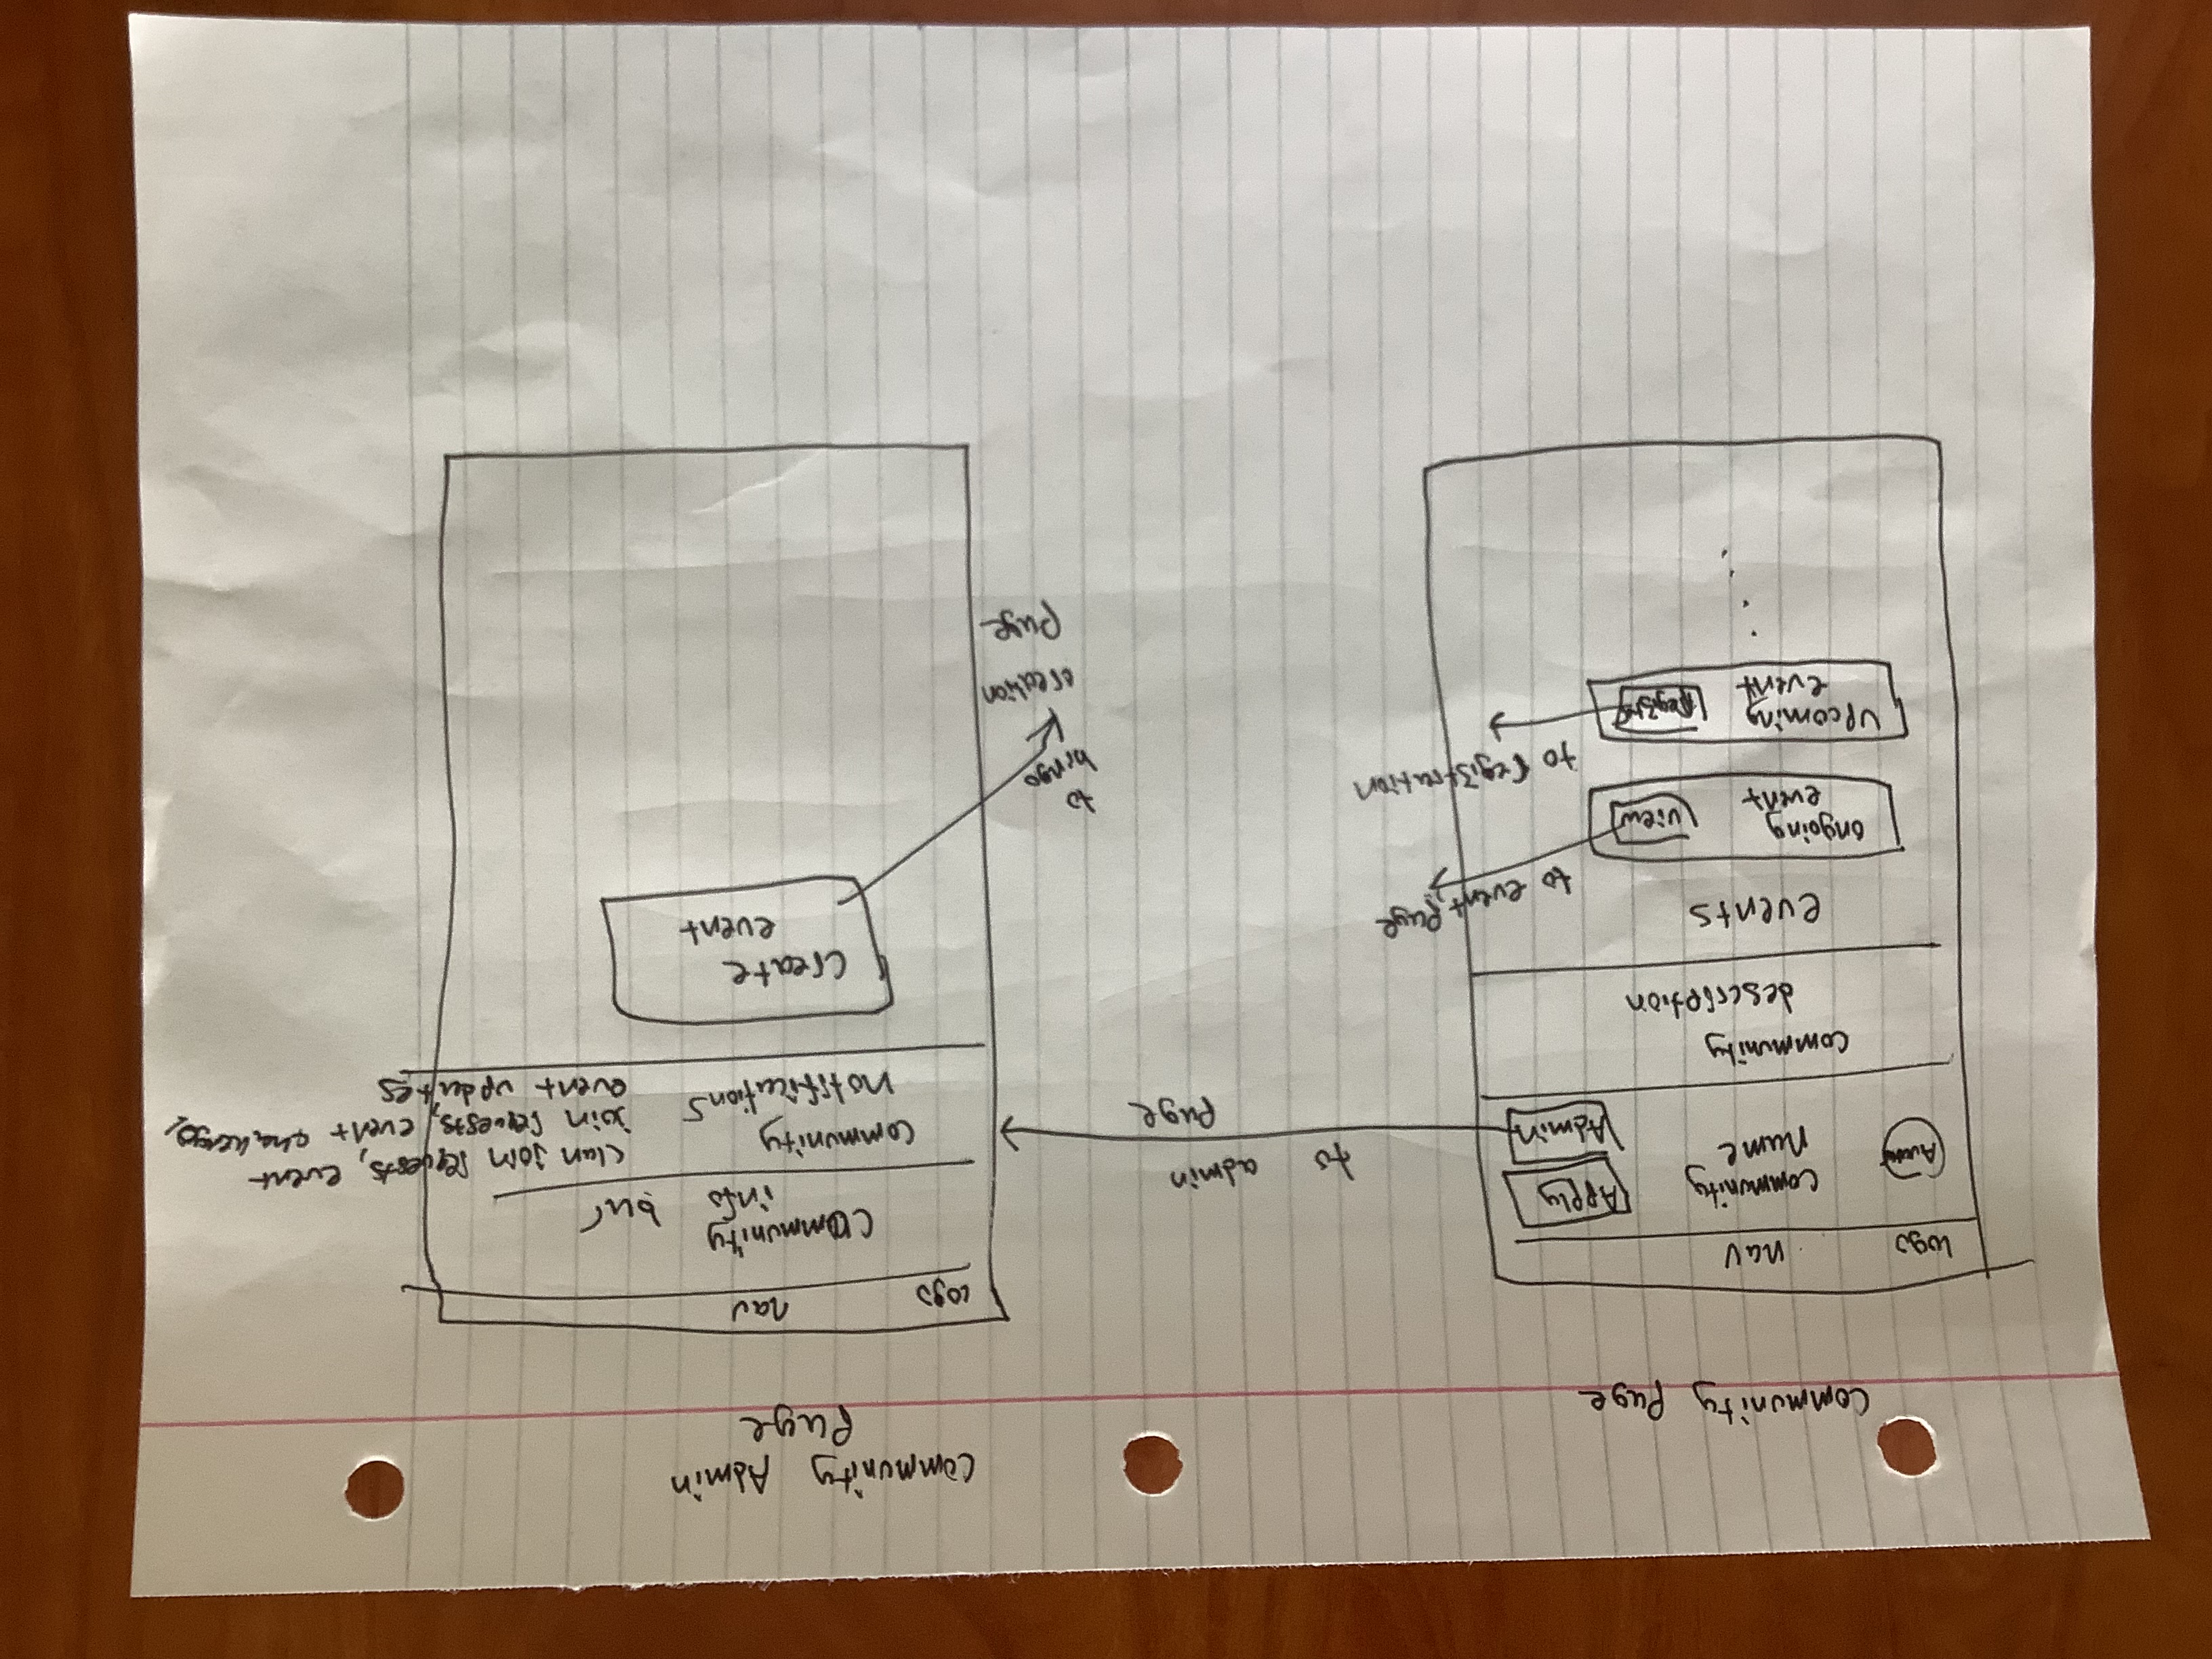 Community Page
logo nav
Avatar
Community
name
Apply
Admin
to admin
page
Community
description
events
ongoing
event
view
to event page
upcoming
event
Register
to registration
Community Admin
Page
logo nav
Community
info bar
Community
notifications
clan join requests, event
join requests, event challenges,
event updates
Create
event
to
bingo
creation
page